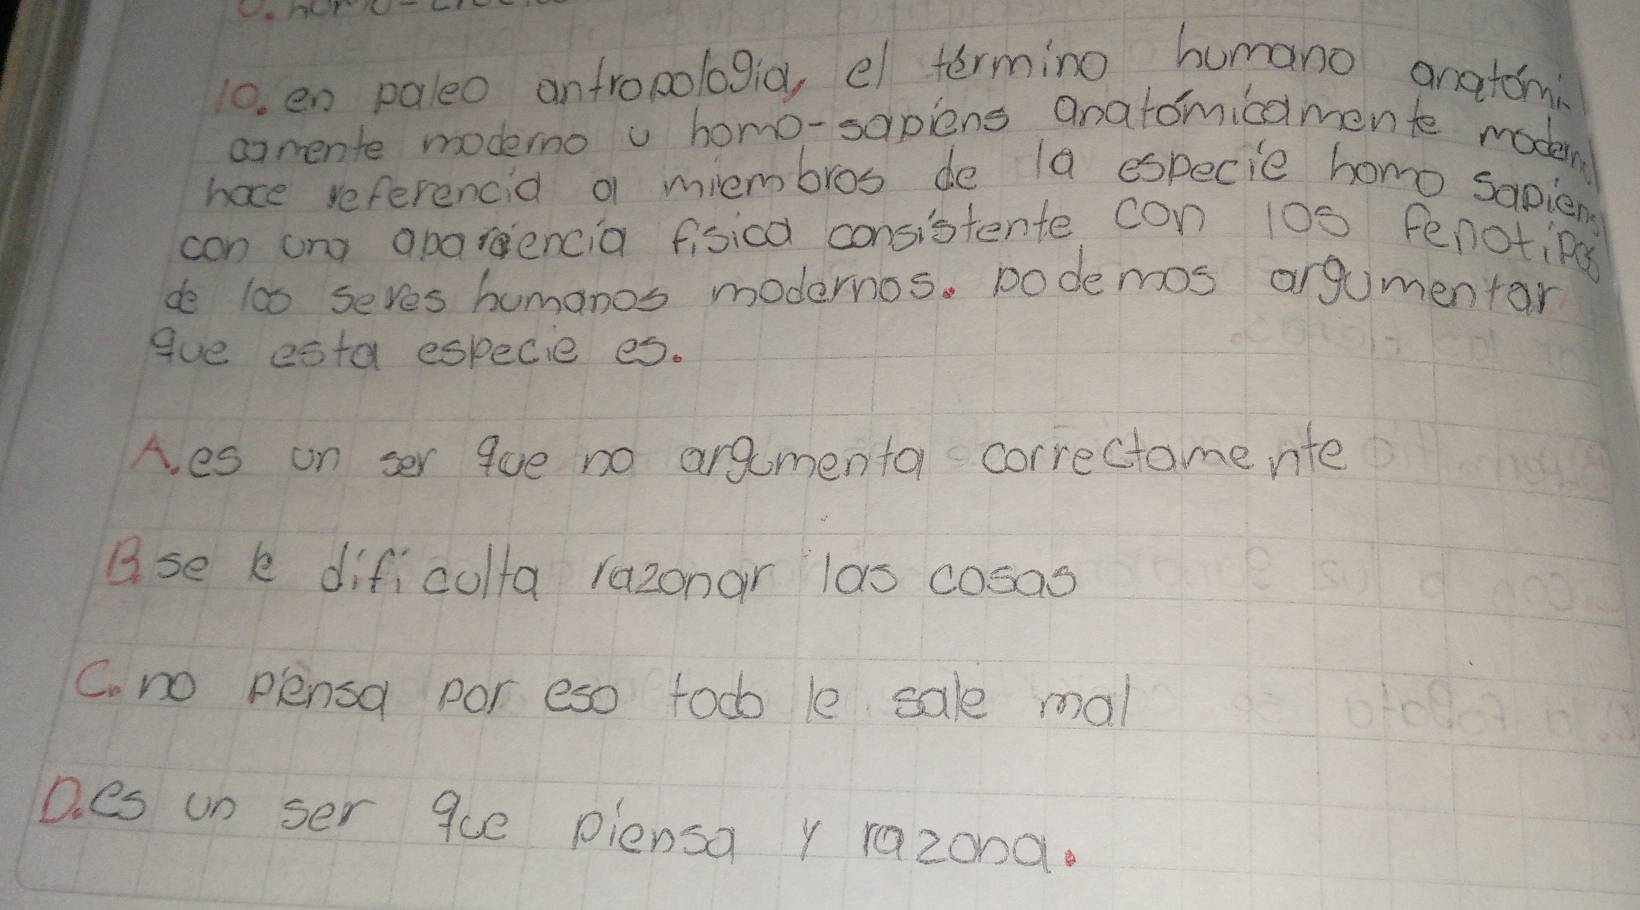 10. en paleo antropologia, el término humano anatómi
camente moderno u homo-sapiens anatómicamente moderno
hace referencia a miembros de la especie homo sapiens
con una aparaencia fisica consistente con los fenotipos
de los seres humanos modernos. podemos argumentar
que esta especie es.
A. es un ser que no argumenta correctamente
B. se le dificulta razonar las cosas
C. no piensa por eso todo le sale mal
D. es un ser que piensa y razona.